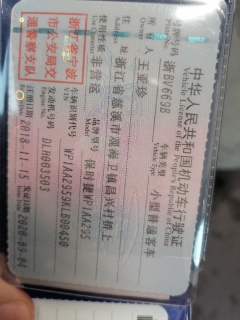 中华人民共和国机动车行驶证
Vehicle License of the People's Republic of China
号牌号码 浙BV669B 车辆类型 小型普通客车
Plate No. Vehicle Type
所有人 王亚珍
Owner
住址 浙江省慈溪市观海卫镇昌兴村桥上
Address
使用性质 非营运 品牌型号 保时捷WP1AA295
Use Character Model
浙江省宁波市公安局交通警察支队
车辆识别代号 WP1AA2959KLB00450
VIN
发动机号码 DLH003503
Engine No.
注册日期 2018-11-15 发证日期 2020-09-04